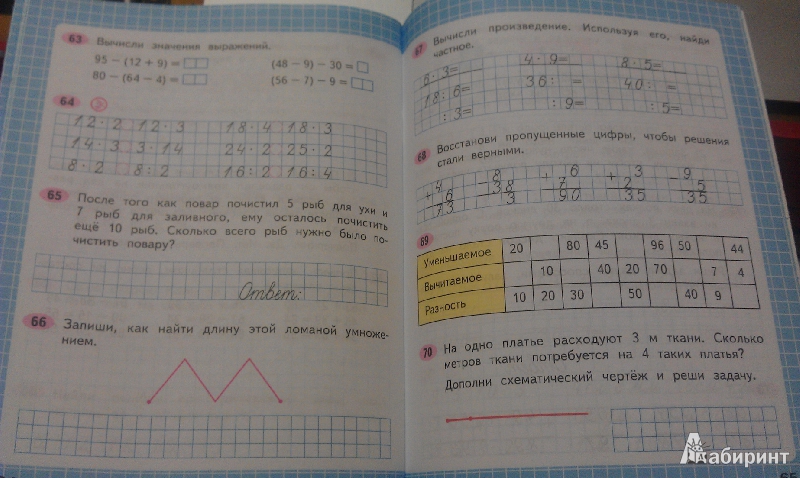 63 Вычисли значения выражений.
95 − (12 + 9) =
(48 − 9) − 30 =
80 − (64 − 4) =
(56 − 7) − 9 =
64 2
12 · 2 12 · 3 18 · 4 18 · 3
14 · 3 3 · 14 24 · 2 25 · 2
8 · 2 8 : 2 16 : 2 16 : 4
65 После того как повар почистил 5 рыб для ухи и
7 рыб для заливного, ему осталось почистить
ещё 10 рыб. Сколько всего рыб нужно было по-
чистить повару?
Ответ:
66 Запиши, как найти длину этой ломаной умноже-
нием.
67 Вычисли произведение. Используя его, найди
частное.
6 · 3 = 4 · 9 = 8 · 5 =
18 : 6 = 36 : = 40 : =
: 3 = : 9 = : 5 =
68 Восстанови пропущенные цифры, чтобы решения
стали верными.
+ 4 − 8 + 6 + 3 − 9
6 38 7 2 5
73 3 90 35 35
69
Уменьшаемое 20 80 45 96 50 44
Вычитаемое 10 40 20 70 7 4
Раз-ость 10 20 30 50 40 9
70 На одно платье расходуют 3 м ткани. Сколько
метров ткани потребуется на 4 таких платья?
Дополни схематический чертёж и реши задачу.
Лабиринт
65